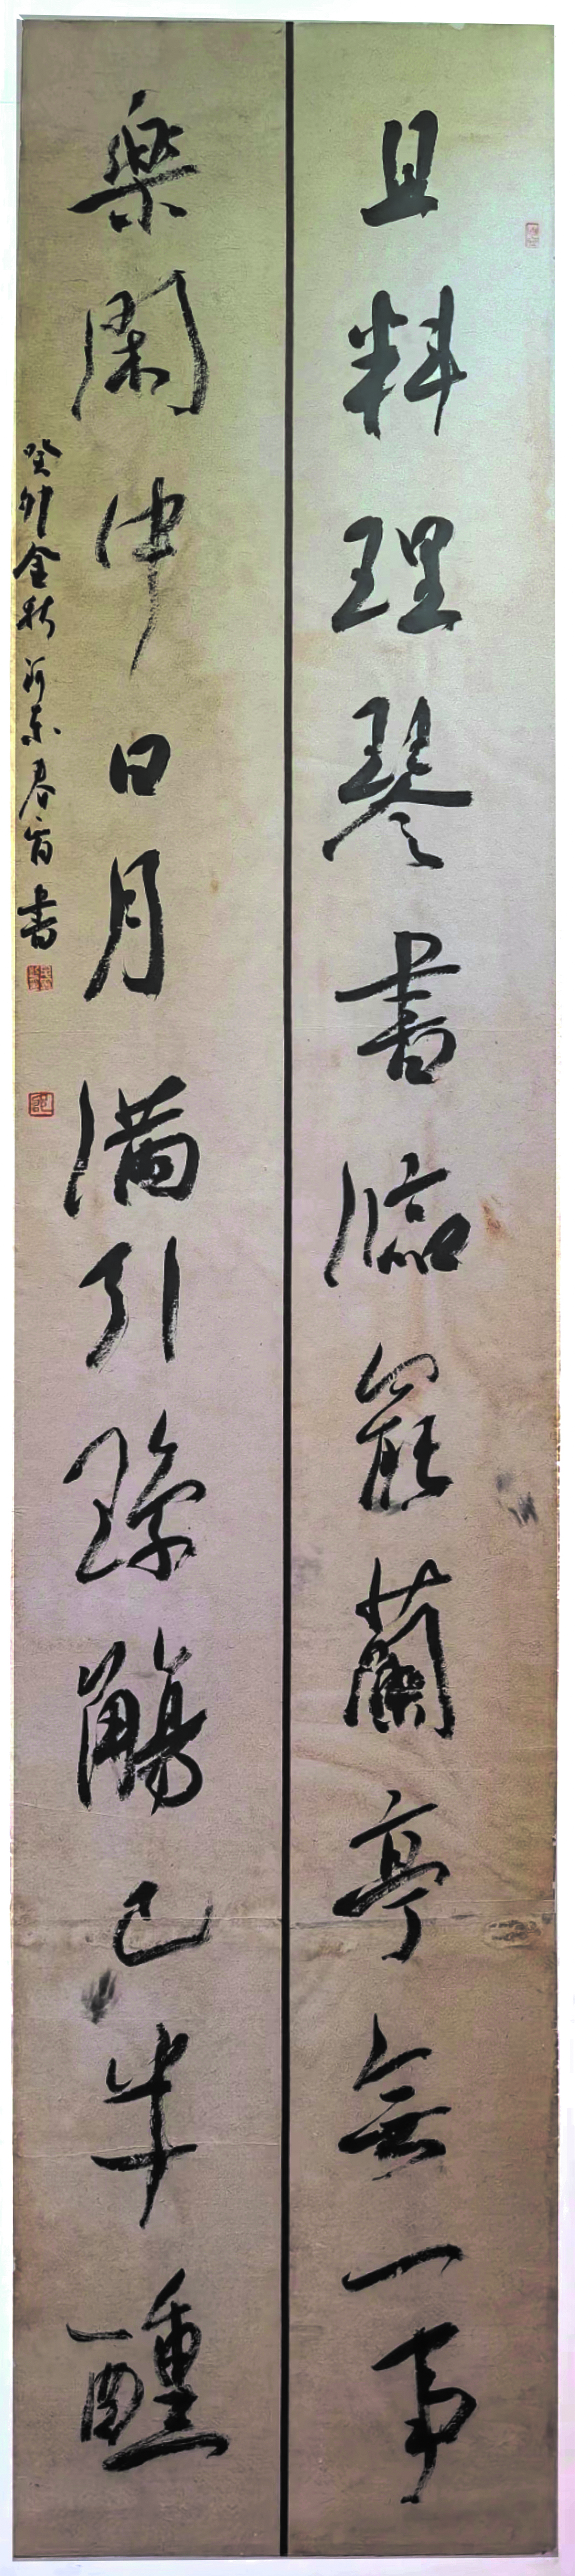 且料理琴書臨罷蘭亭無一事
樂閑中日月滿引瓊觴已半醺
癸卯金秋河東春官書